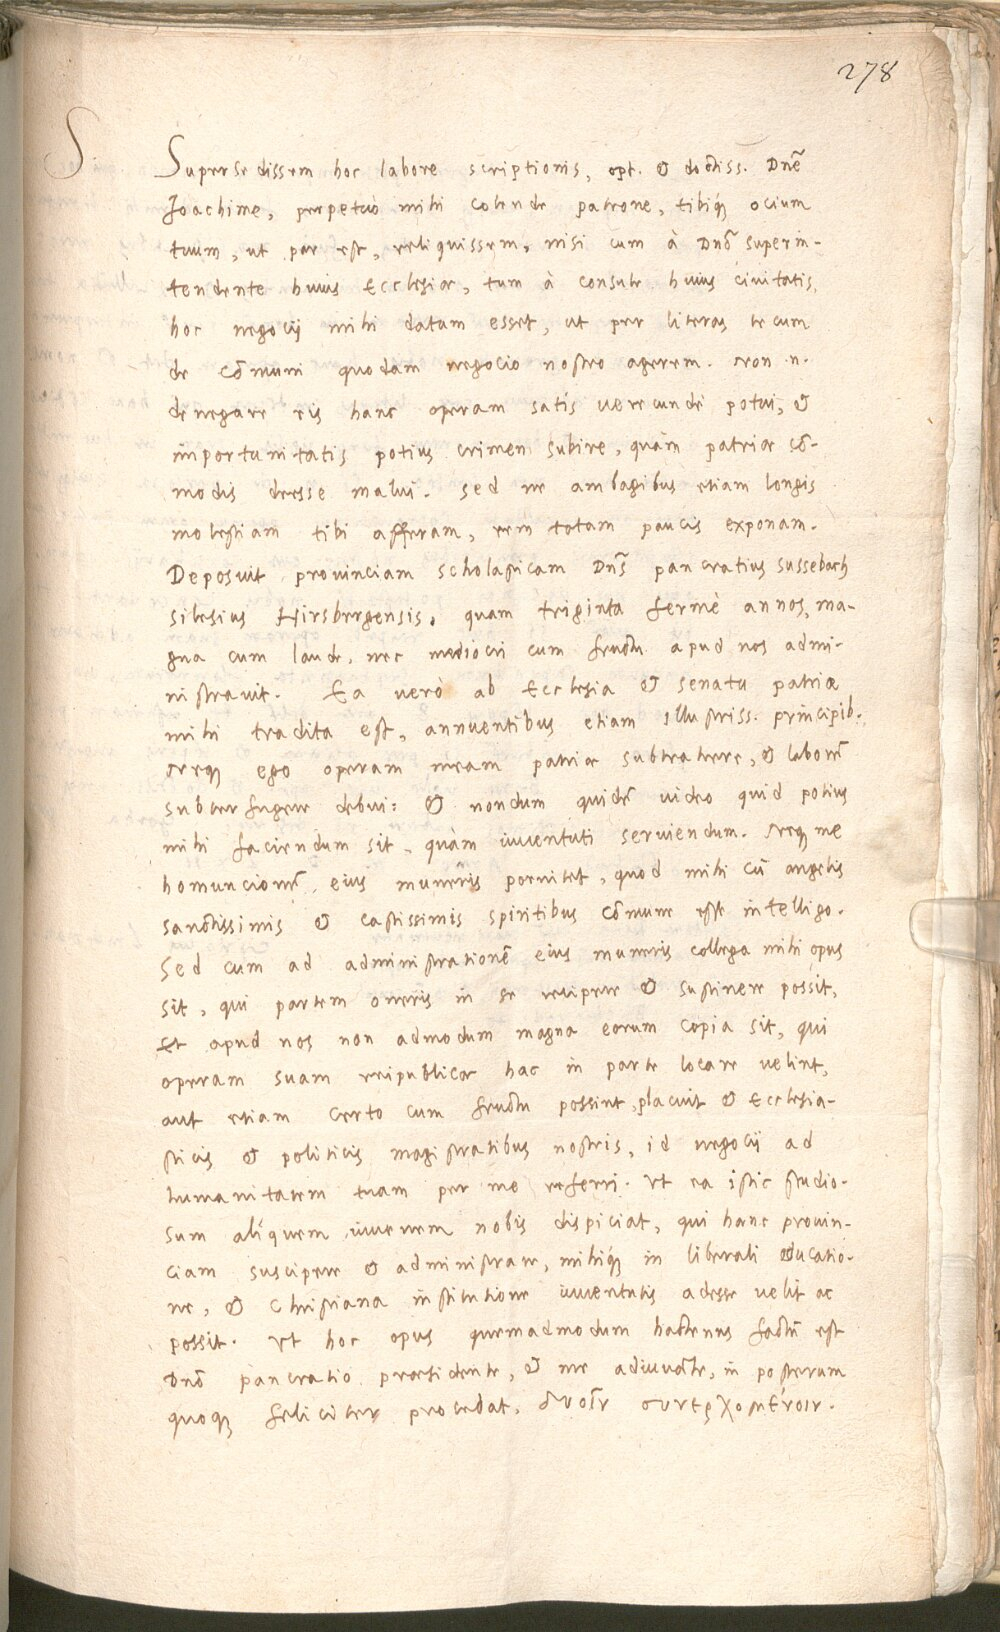 278
S. Supersedissem hoc labore scriptionis, opt. & doctiss. Dnē
Joachime, perpetuò mihi colende patrone, tibiq́; ocium
tuum, ut par est, reliquissem, nisi cum à Dnō superin-
tendente huius Ecclesiae, tum à consule huius ciuitatis,
hoc negocij mihi datum esset, ut per literas tecum
de cōmuni quodam negocio nostro agerem. Non .n.
denegare eis hanc operam satis uerecundè potui, &
importunitatis potius crimen subire, quàm patriae cō-
modis deesse malui. Sed ne ambagibus etiam longis
molestiam tibi afferam, rem totam paucis exponam.
Deposuit prouinciam scholasticam Dn̄s pancratius Sussebach
silesius Hirsbergensis, quam triginta fermè annos, ma-
gna cum laude, nec mediocri cum fructu apud nos admi-
nistrauit. Ea uerò ab Ecclesia & senatu patriae
mihi tradita est, annuentibus etiam Illustriss. principib.
Neq; ego operam meam patriae subtrahere, & laborē
subterfugere debui: & nondum quidē uideo quid potius
mihi faciendum sit, quàm iuuentuti seruiendum. Neq; me
homuncionē eius muneris poenitet, quod mihi cū angelis
sanctissimis & castissimis spiritibus cōmune esse intelligo.
Sed cum ad administrationē eius muneris collega mihi opus
sit, qui partem oneris in se recipere & sustinere possit,
Et apud nos non admodum magna eorum copia sit, qui
operam suam reipublicae hac in parte locare uelint,
aut etiam certo cum fructu possint, placuit & Ecclesia-
sticis & politicis magistratibus nostris, id negocij ad
humanitatem tuam per me referri. Vt ea istic studio-
sum aliquem iuuenem nobis dispiciat, qui hanc prouin-
ciam suscipere & administrare, mihiq́; in liberali educatio-
ne, & Christiana institutione iuuentutis adesse uelit ac
possit. Vt hoc opus quemadmodum hactenus factū est
Dnō pancratio praesidente, & me adiuuāte, in posterum
quoq; feliciter procedat, δυοῖν συνερχομένοιν.